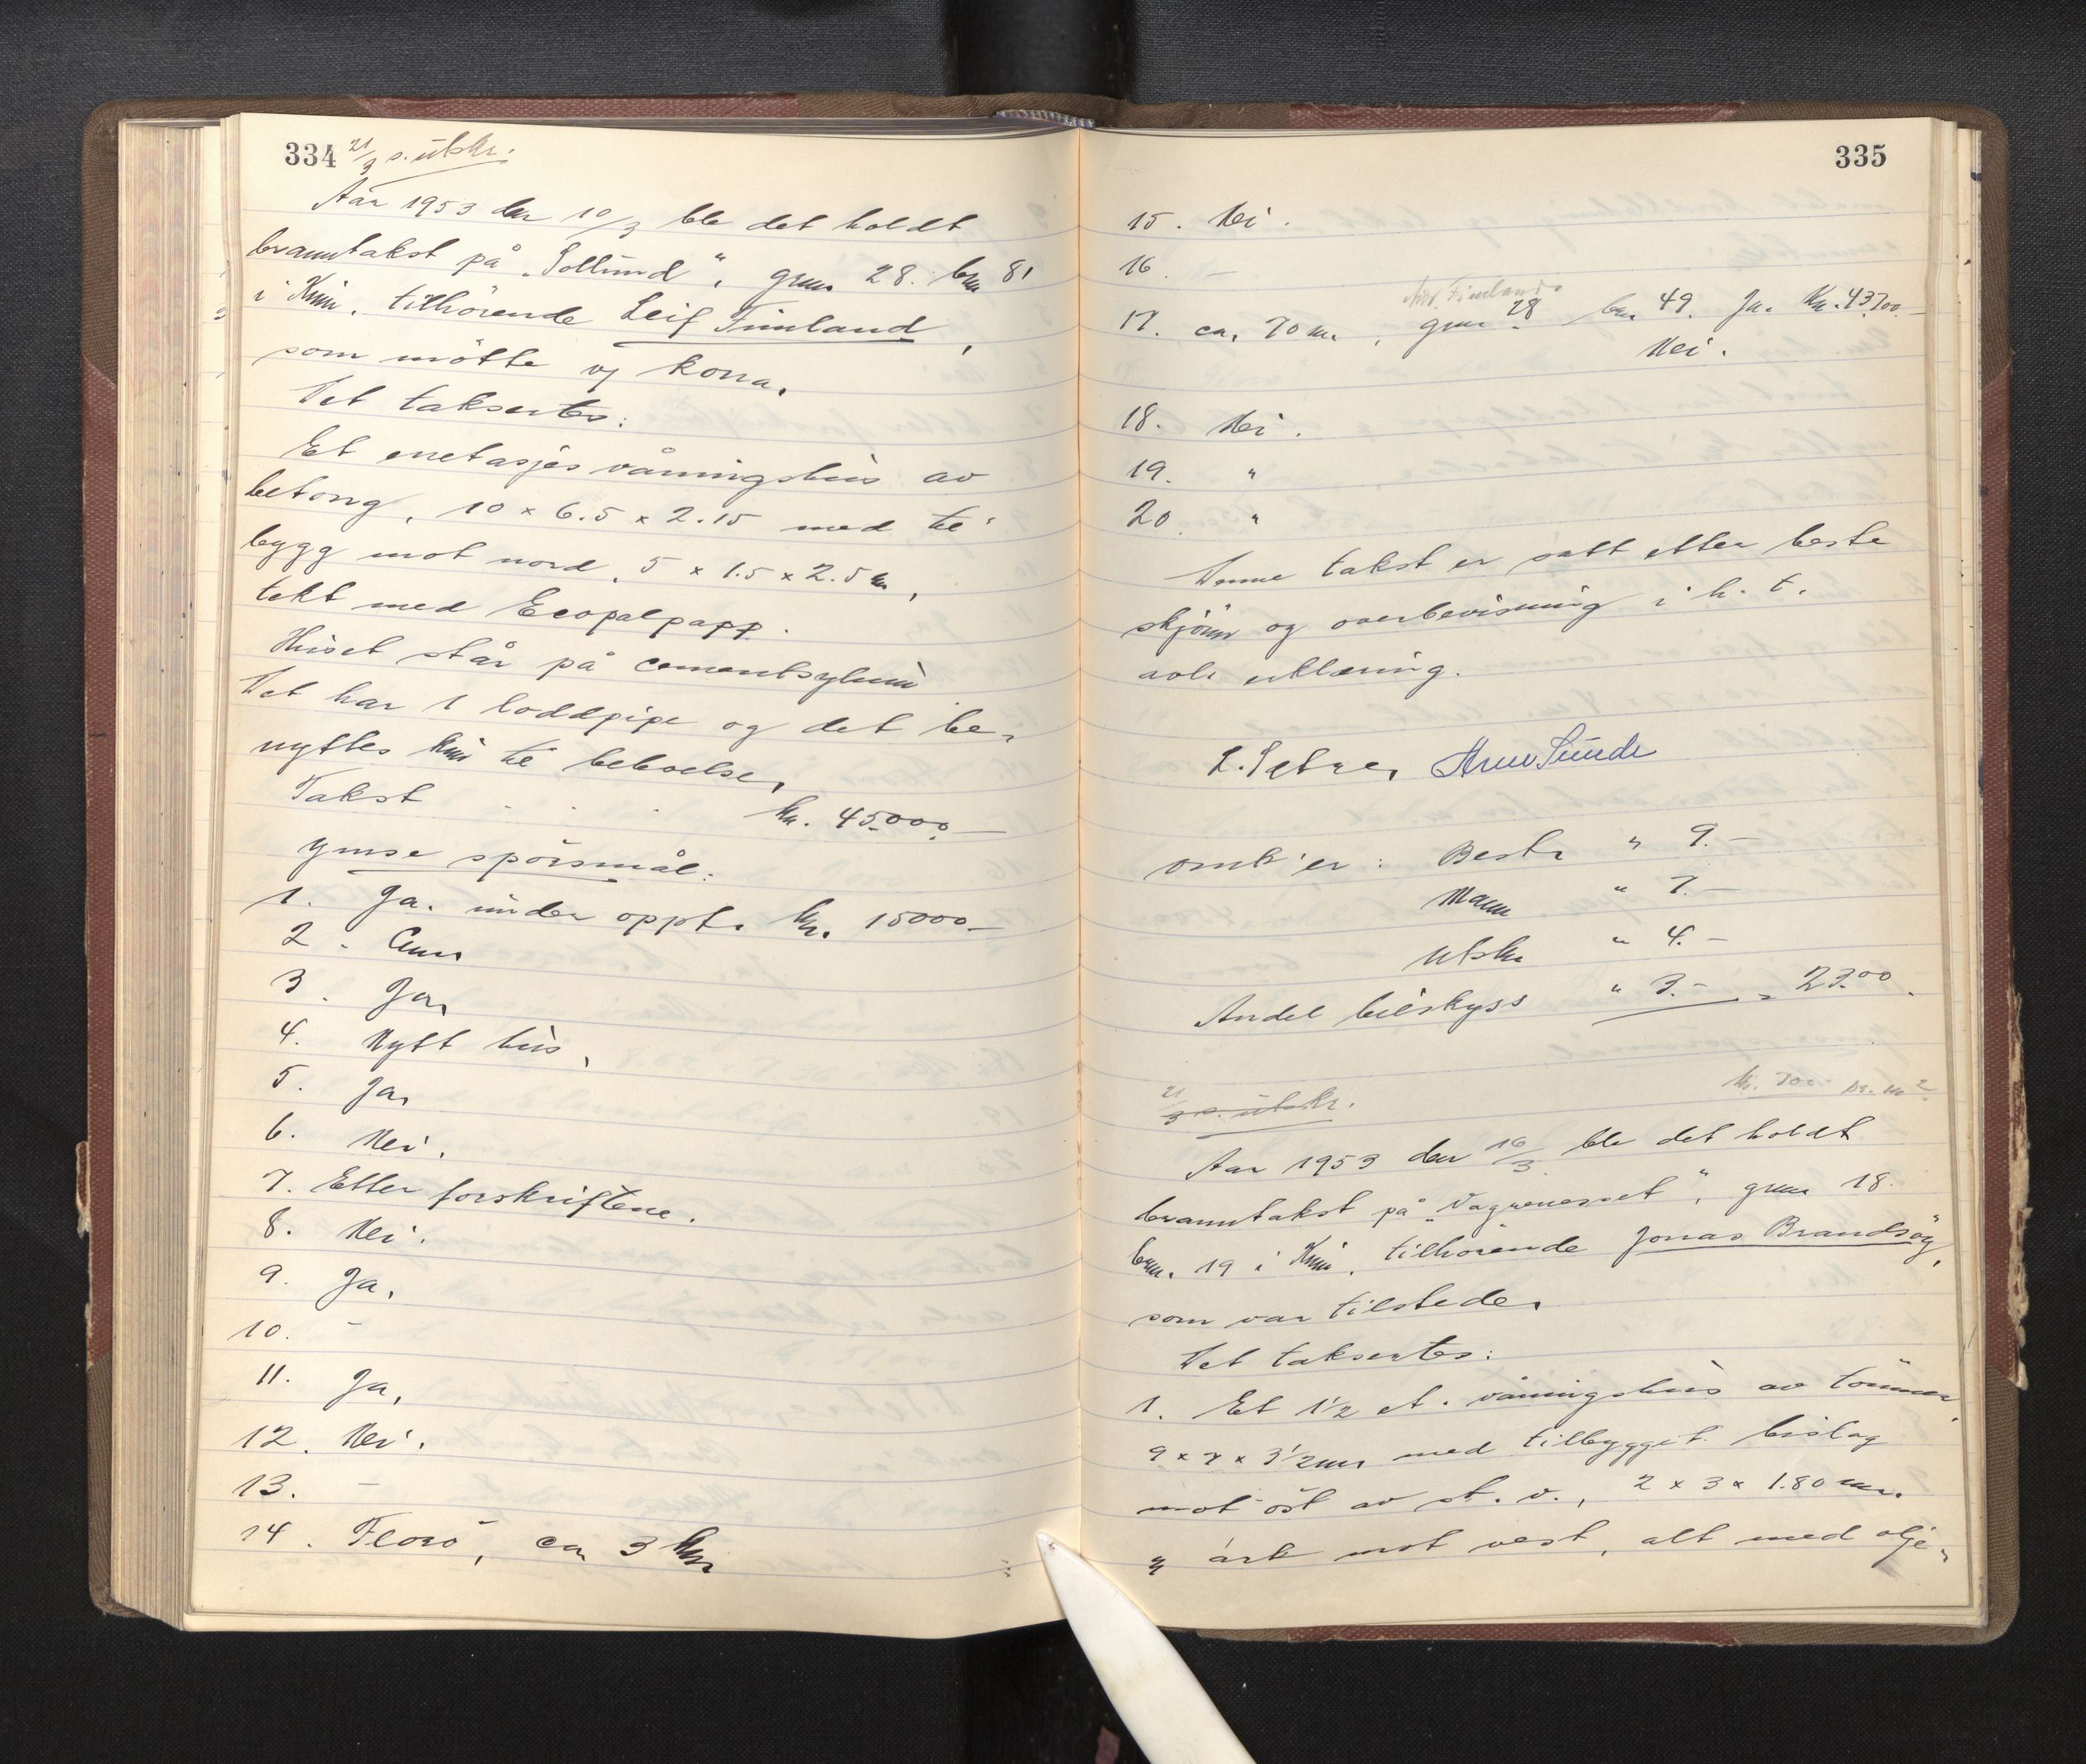 334 21/3 s. utskr.
Aar 1953 den 10/3 ble det holdt
branntakst på „Sollund", gnr. 28. bnr 81
i Kinn, tilhörende Leif Fimland,
som mötte v/ kona.
Det taksertes:
Et enetasjes våningshus av
betong, 10 x 6.5 x 2.15 med til
bygg mot nord, 5 x 1.5 x 2.5 m,
tekt med Ecopalpapp.
Huset står på cementsylinn
Det har 1 loddpipe og det be-
nyttes kun til beboelse,
Takst . . . kr. 45.000.—
Ymse spörsmål:
1. Ja. under oppf. kr. 15000.—
2.
3. Ja,
4. Nytt hus,
5. Ja,
6. Nei.
7. Etter forskriftene.
8. Nei.
9. Ja,
10. –
11. Ja,
12. Nei.
13. –
14. Florö, ca 3 km
335
15. Nei.
16. –
Fimland
17. ca. 70 m, gnr 28 bnr 49. Ja. Kr. 43700.—
Nei.
18. Nei.
19. "
20. "
Denne takst er satt etter beste
skjönn og overbevisning i h. t.
avl. erklæring.
L. Sætre, Arne Sunde
omk'er: Bestr " 9.—
Mann " 7.—
Utskr " 4.—
Andel bilskyss " 3.— = 23.00
kr. 700.- pr. m²
21/3 s. utskr.
Aar 1953 den 16/3 ble det holdt
branntakst på „Vagneneset", gnr 18.
bnr. 19 i Kinn, tilhörende Jonas Brandsöy,
som var tilstede,
Det taksertes:
1. Et 1½ et. våningshus av tömmer,
9 x 7 x 3½ m, med tilbygget bislag
mot öst av st. v., 2 x 3 x 1.80 m.
" ark mot vest, alt med olje-